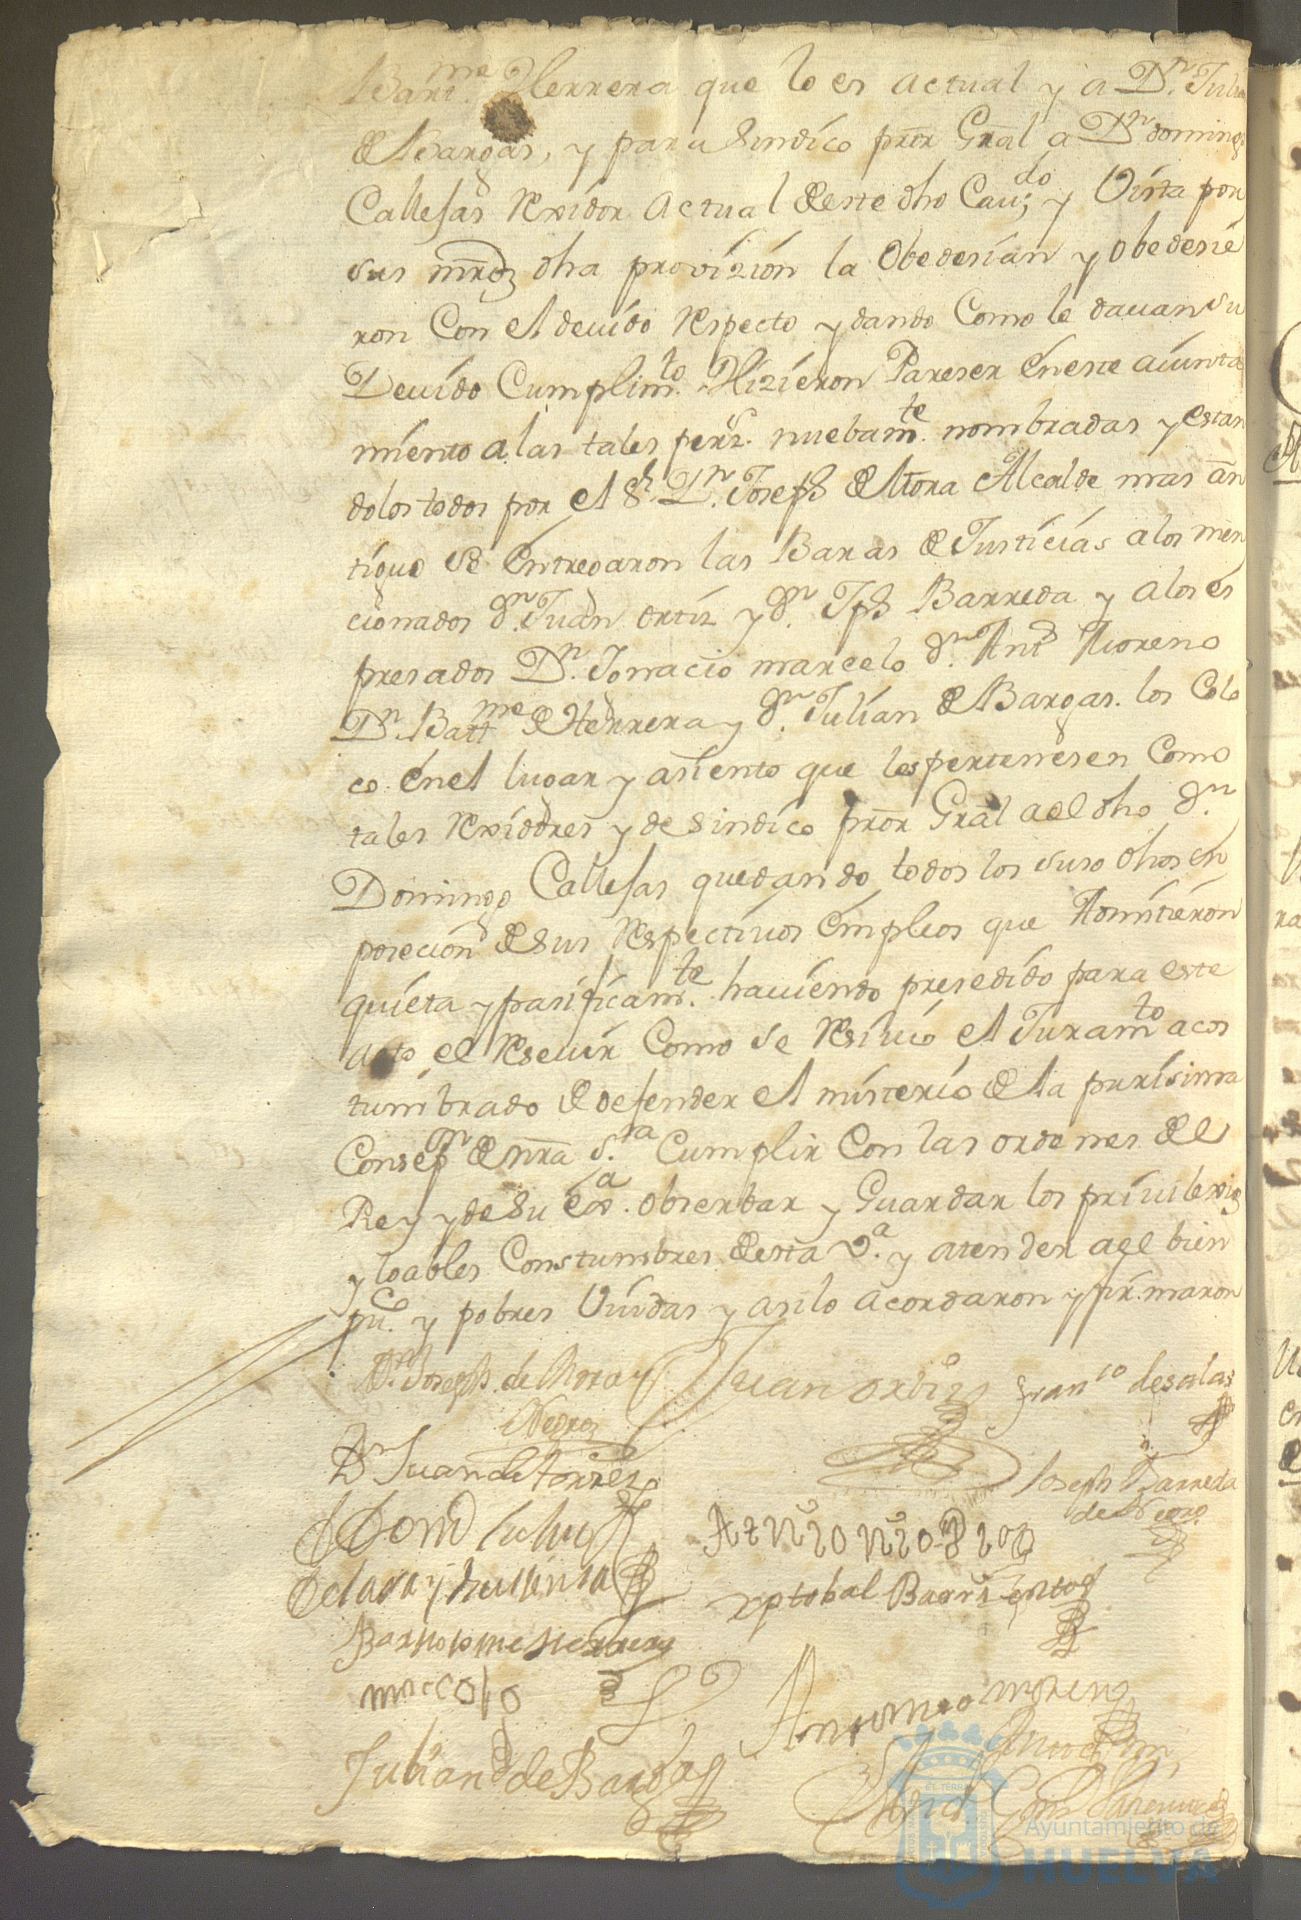 Bart.me Herrera que lo es actual y a D.n Julian
de Bargas, y para Sindico pror Gral a D.n Doming.o
Callejas Rexidor Actual deste dho Cav.do y Vista por
sus mrds dha provizion la Obedesian y Obedesie
ron Con el devido Respecto y dando Como le davan su
Devido Cumplim.to Hizieron Pareser en este aiunta
miento a las tales pers.s nuebam.te nombradas y estan
dolos todos por el S.r D.n Joseph de Mora Alcalde mas an
tiguo se entregaron las Baras de Justicias a los men
cionados d.n Juan ortiz y d.n Jph Barreda y a los es
presados D.n Ignacio marcelo d.n Ant.o Moreno
D.n Batt.me de Herrera y d.n Julian de Bargas. los Colo
co en el lugar y asiento que les pertenesen Como
tales Rexidores y de sindico pror Gral a el dho d.n
Domingo Callejas quedando todos los suso dhos en
posecion de sus Respectivos empleos que Admitieron
quieta y pasificam.te haviendo presedido para este
acto el Resevir Como se Resivio el Juram.to acos
tumbrado de defender el misterio de la purisima
Consep.n de nra s.ra Cumplir Con las ordenes de el
Rey y de su ex.a obserbar y Guardar los privilexios
y loables Constumbres desta v.a y atender a el bien
pu.co y pobres Viudas y asi lo acordaron y firmaron
D.n Joseph de Mora y Negro
Juan ortiz
Fran.co de salas
D.n Juan de Torres
Joseph Barreda
de Negro
Antonio
xptobal Barrientos
Bartholome Herrera
marcelo
Antonio moreno
Julian de Bargas
Ayuntamiento de
HUELVA